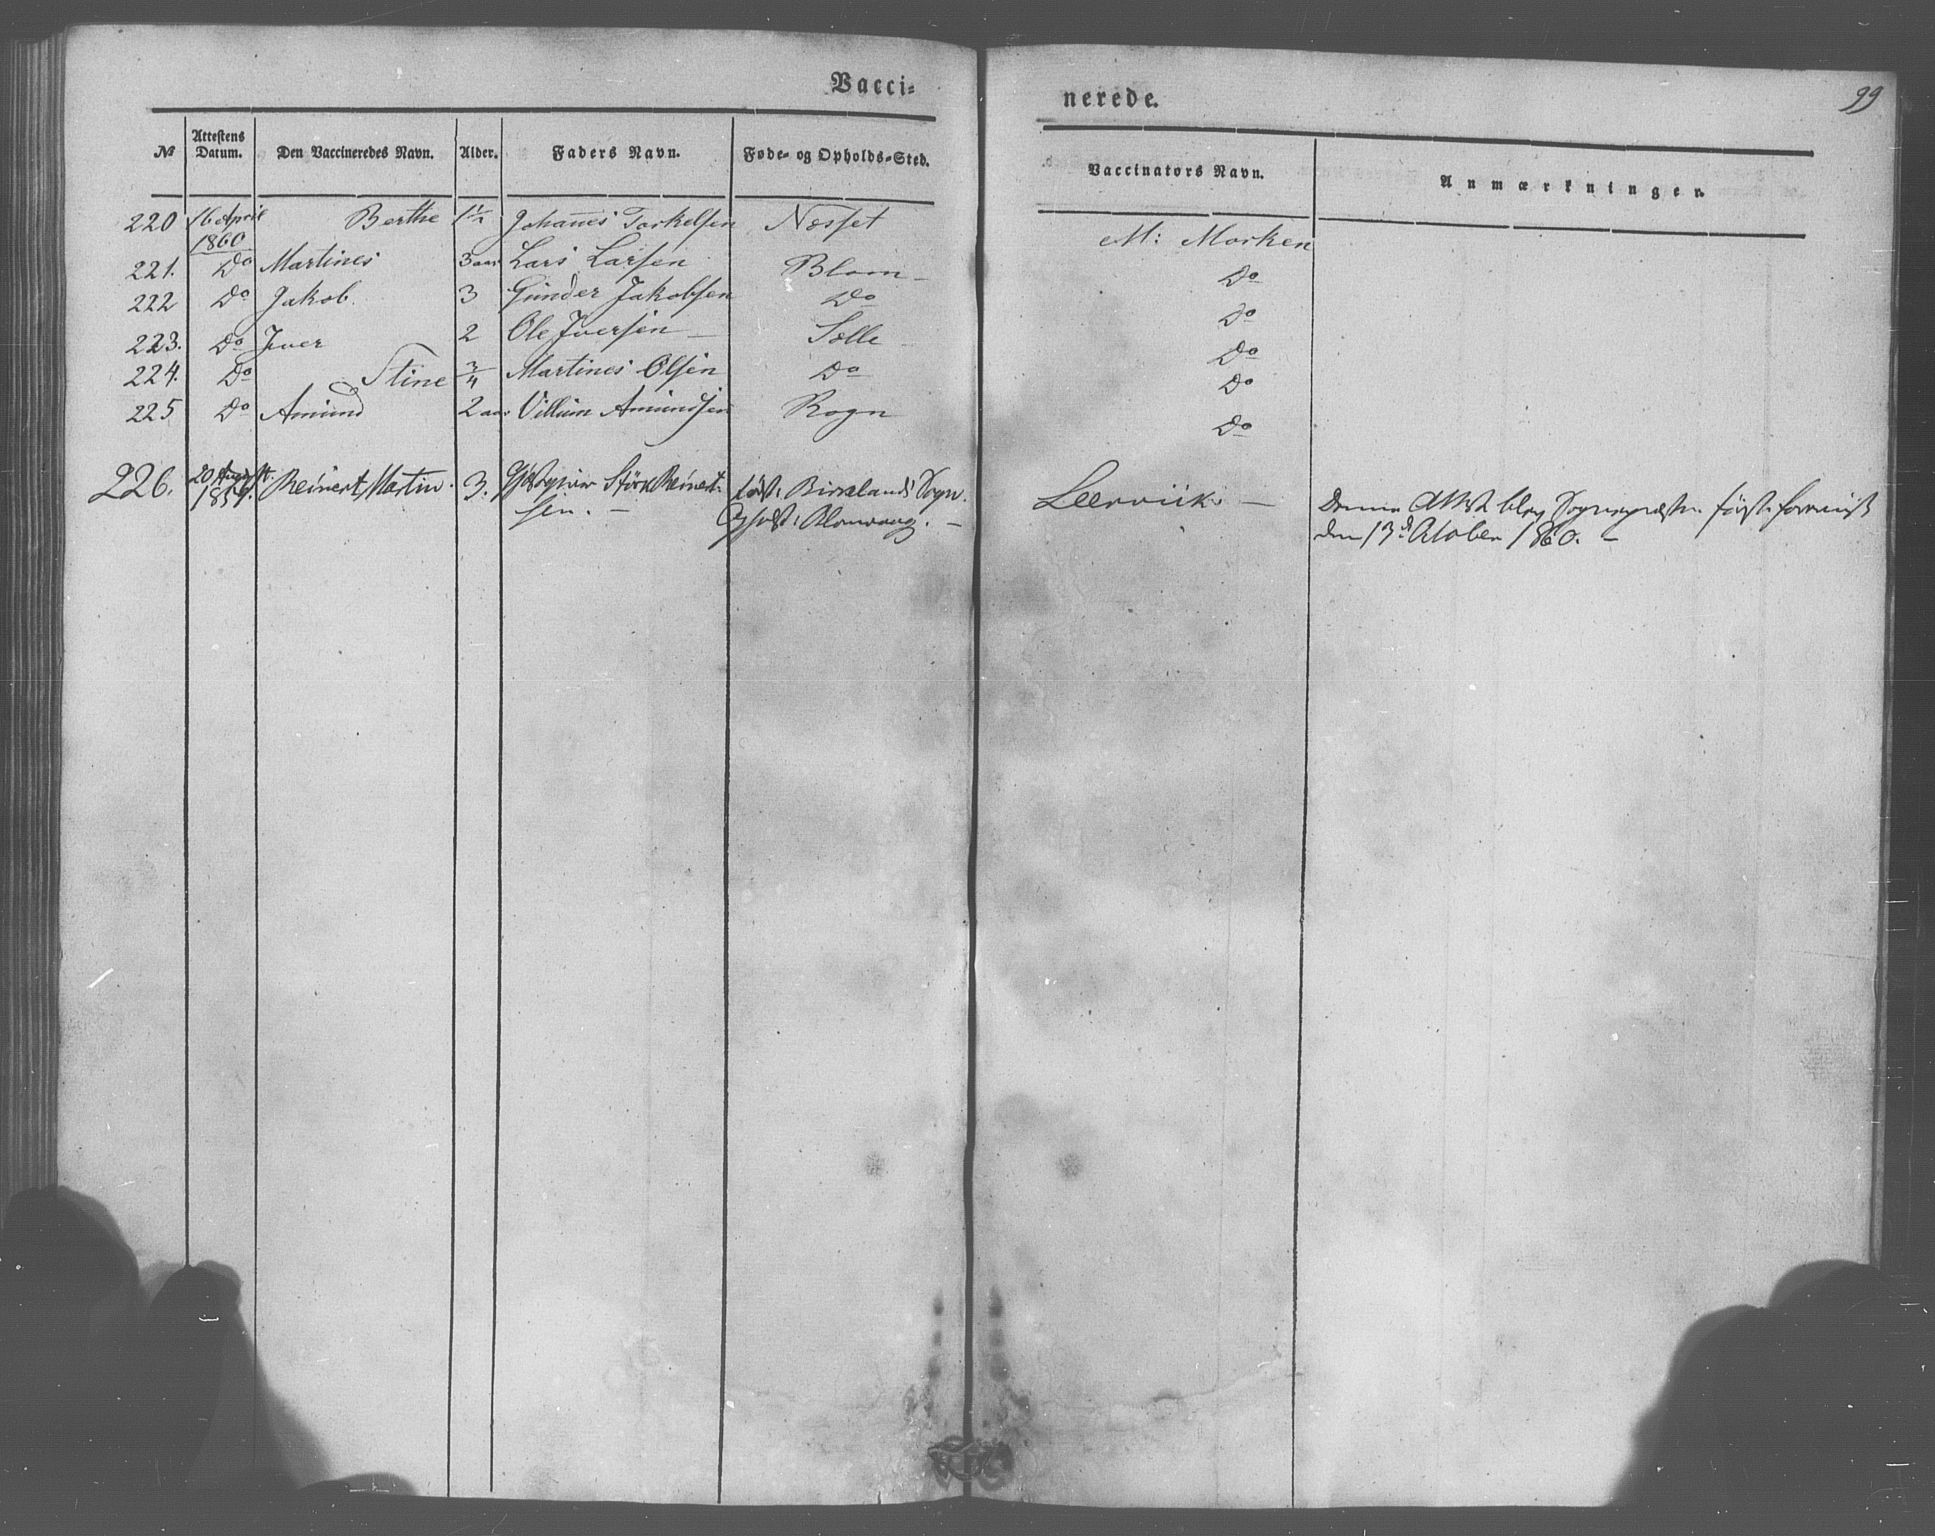 Vacci-
nerede.
99
No
Attestens Datum.
Den Vaccineredes Navn.
Alder.
Faders Navn.
Føde- og Opholds-Sted.
Vaccinators Navn.
Anmærkninger.
220 16 April 1860 Berthe 1½ Johannes Torkelsen Næsset M: Morken
221. Do Martines 3 aar Lars Larsen Blom Do
222 Do Jakob. 3 Gunder Jakobsen Do Do
223. Do Iver 2 Ole Iversen Solle Do
224. Do Stine 3/4 Martines Olsen Do Do
225 Do Amund 2 aar Villum Amundsen Rogn Do
226. 20 August. Reinert Martin. 3. Reinert- Sogn. Leerviik Denne Attest blev Sognepræsten først foreviist
sen. Blomvaag. den 13de October 1860.